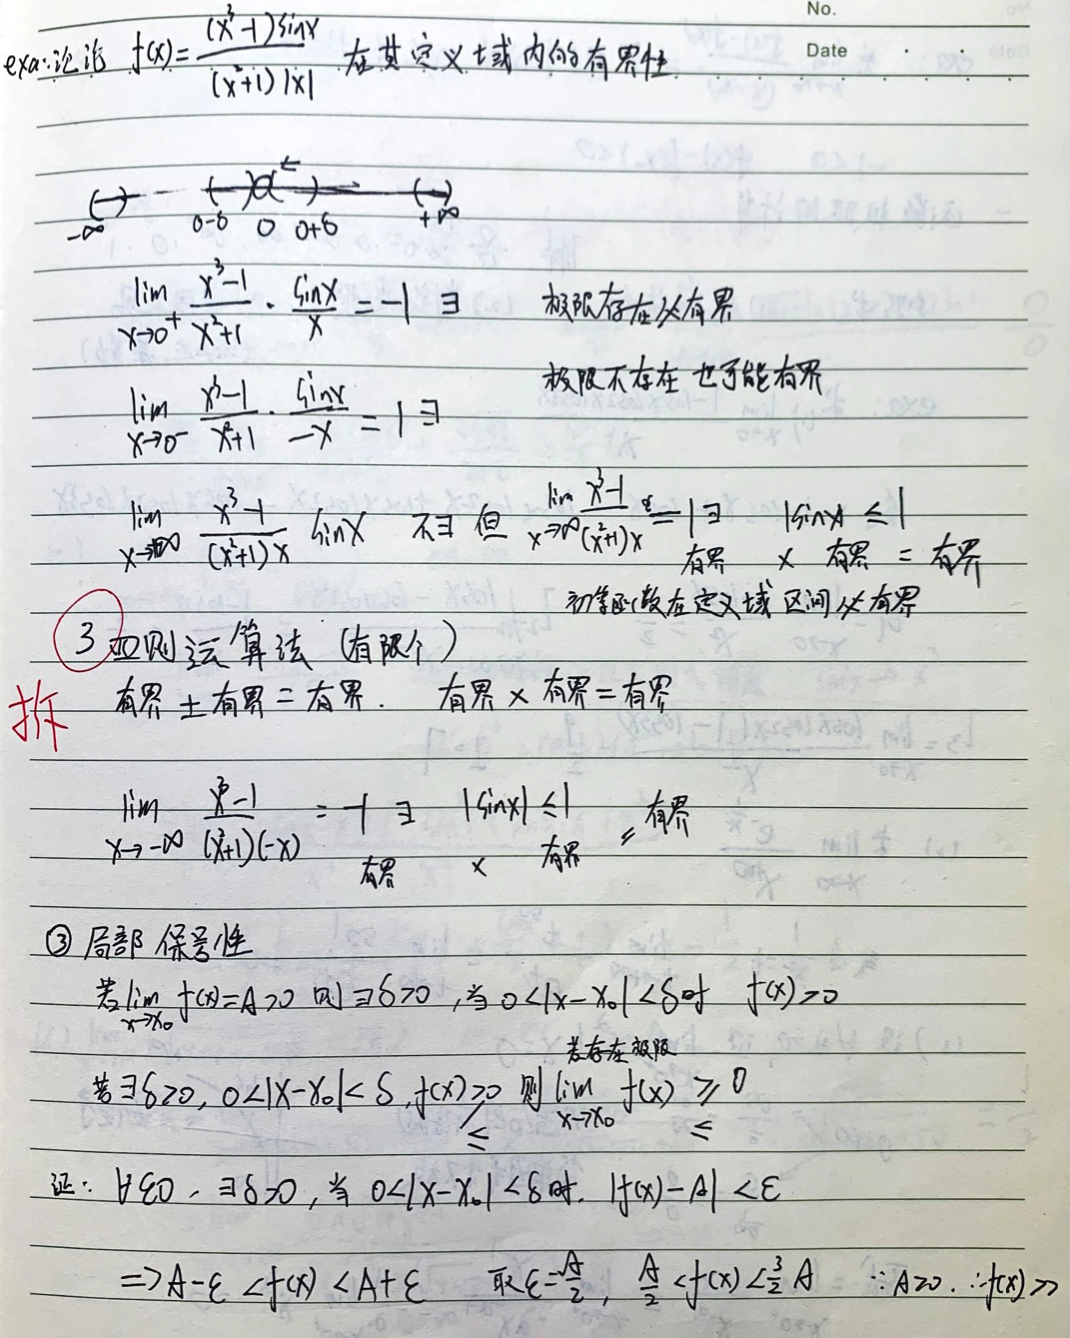 No.
Date
exa: 讨论 f(x)= (x³-1)sinx / (x²+1)|x| 在其定义域内的有界性
-∞ 0-δ 0 0+δ +∞
lim x→0⁺ (x³-1)/(x²+1) · sinx/x = -1 ∃ 极限存在必有界
极限不存在 也可能有界
lim x→0⁻ (x³-1)/(x²+1) · sinx/-x = 1 ∃
lim x→+∞ (x³-1)/((x²+1)x) sinx 不∃ 但 lim x→∞ (x³-1)/((x²+1)x) = 1 ∃ |sinx| ≤ 1
有界 × 有界 = 有界
初等函数在定义域区间必有界
3 四则运算法 (有限个)
拆 有界 ± 有界 = 有界. 有界 × 有界 = 有界
lim x→-∞ (x³-1)/((x²+1)(-x)) = -1 ∃ |sinx| ≤ 1 = 有界
有界 × 有界
③ 局部保号性
若 lim x→x₀ f(x)=A>0 则 ∃δ>0, 当 0<|x-x₀|<δ时 f(x)>0
若存在极限
若∃δ>0, 0<|x-x₀|<δ, f(x)≥0 则 lim x→x₀ f(x) ≥ 0
≤ ≤
证: ∀ε0, ∃δ>0, 当 0<|x-x₀|<δ时. |f(x)-A|<ε
=> A-ε<f(x)<A+ε 取ε=A/2, A/2<f(x)<3/2 A ∵A>0. ∴f(x)>